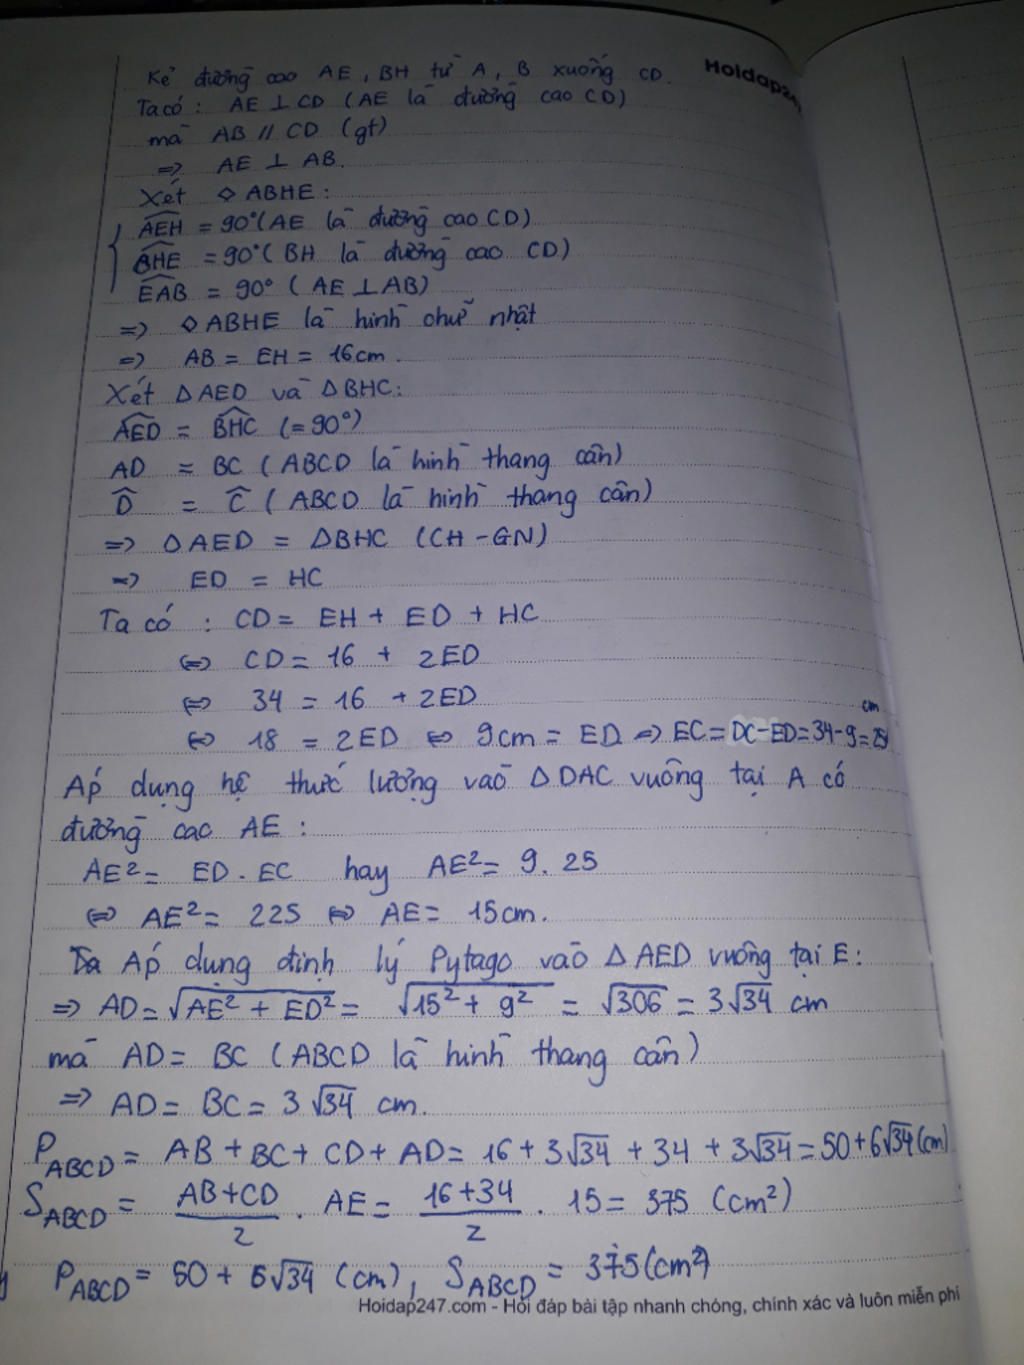 Kẻ đường cao AE, BH từ A, B xuống CD. Hoidap247
Ta có: AE ⊥ CD (AE là đường cao CD)
mà AB // CD (gt)
=> AE ⊥ AB.
Xét ◇ ABHE:
{ AEH = 90° (AE là đường cao CD)
BHE = 90° (BH là đường cao CD)
EAB = 90° (AE ⊥ AB)
=> ◇ ABHE là hình chữ nhật
=> AB = EH = 16cm.
Xét Δ AED và Δ BHC:
AED = BHC (= 90°)
AD = BC (ABCD là hình thang cân)
D̂ = Ĉ (ABCD là hình thang cân)
=> Δ AED = Δ BHC (CH - GN)
=> ED = HC
Ta có : CD = EH + ED + HC
<=> CD = 16 + 2ED
<=> 34 = 16 + 2ED
<=> 18 = 2ED <=> 9cm = ED => EC = DC - ED = 34 - 9 = 25 cm
Áp dụng hệ thức lượng vào Δ DAC vuông tại A có
đường cao AE :
AE² = ED . EC hay AE² = 9 . 25
<=> AE² = 225 <=> AE = 15cm.
Áp dụng định lý Pytago vào Δ AED vuông tại E:
=> AD = √(AE² + ED²) = √(15² + 9²) = √306 = 3√34 cm
mà AD = BC (ABCD là hình thang cân)
=> AD = BC = 3√34 cm.
P_ABCD = AB + BC + CD + AD = 16 + 3√34 + 34 + 3√34 = 50 + 6√34 (cm)
S_ABCD = (AB + CD)/2 . AE = (16 + 34)/2 . 15 = 375 (cm²)
P_ABCD = 50 + 6√34 (cm), S_ABCD = 375 (cm²)
Hoidap247.com - Hỏi đáp bài tập nhanh chóng, chính xác và luôn miễn phí